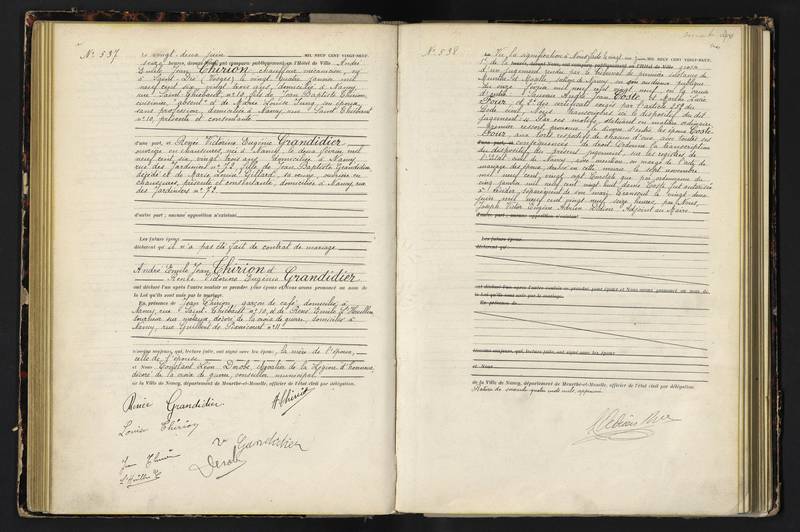 N° 537
Le vingt deux juin MIL NEUF CENT VINGT-NEUF,
seize heures, devant Nous ont comparu publiquement en l'Hôtel de Ville André
Emile Jean Chirion chauffeur mécanicien, né
à Saint-Dié (Vosges) le vingt quatre janvier mil
neuf cent six, vingt trois ans, domicilié à Nancy,
rue Saint Thiébault n° 10, fils de Jean Baptiste Chirion,
cuisinier, absent et de Marie Louise Jung, son épouse,
sans profession, domiciliés à Nancy rue Saint Thiébault
n° 10, présente et consentante
d'une part, et Renée Victorine Eugénie Grandidier
ouvrière en chaussures, née à Nancy, le deux février mil
neuf cent six, vingt trois ans, domiciliée à Nancy
rue des Jardiniers n° 72, fille de Jean Baptiste Grandidier
décédé et de Marie Louise Gillard, sa veuve, ouvrière en
chaussures, présente et consentante, domiciliée à Nancy, rue
des Jardiniers n° 72.
d'autre part ; aucune opposition n'existant.
Les futurs époux
déclarent qu'il n'a pas été fait de contrat de mariage
André Emile Jean Chirion et
Renée Victorine Eugénie Grandidier
ont déclaré l'un après l'autre vouloir se prendre pour époux et Nous avons prononcé au nom de
la Loi qu'ils sont unis par le mariage.
En présence de Jean Chirion, garçon de café, domicilié à
Nancy, rue Saint Thiébault n° 10, et de René Emile
décoré de la croix de guerre, domicilié à
Nancy, rue Guilbert de Pixérécourt n° 11
témoins majeurs, qui, lecture faite, ont signé avec les époux, la mère de l'époux,
celle de l'épouse
et Nous Constant Léon Dérobe, chevalier de la Légion d'honneur,
décoré de la croix de guerre, conseiller municipal
de la Ville de Nancy, département de Meurthe-et-Moselle, officier de l'état civil par délégation.
Renée Grandidier
Louise Chirion
Grandidier
Dérobe
N° 538
Vu la signification à Nous faite le vingt juin MIL NEUF CENT VINGT-NEUF,
1° de la grosse
d'un jugement rendu par le tribunal de première instance de
Meurthe et Moselle séant à Nancy, en son audience publique
du onze janvier mil neuf cent vingt neuf en la cause
d'entre Germain André Jean Coste et Marthe Lucie
Jour, et 2° des certificats exigés par l'article 252 du
Code civil, Nous transcrivons ici le dispositif du dit
jugement : « Par ces motifs, statuant en matière ordinaire
et premier ressort, prononce le divorce d'entre les époux Coste
Jour aux torts respectifs de chacun d'eux, avec toutes ses
conséquences de droit. Ordonne la transcription
du dispositif du présent jugement, sur les registres de
l'état civil de Nancy avec mention en marge de l'acte de
mariage des époux, dressé en cette mairie le sept novembre
mil neuf cent vingt sept. Constate que par ordonnance du
cinq janvier mil neuf cent vingt huit dame Coste fut autorisée
à résider séparément de son mari. Transcrit le vingt deux
juin mil neuf cent vingt neuf, seize heures, par Nous,
Joseph Victor Eugène Adjoint au Maire
d'autre part ; aucune opposition n'existant
Les futurs époux
déclarent qu'
ont déclaré l'un après l'autre vouloir se prendre pour époux et Nous avons prononcé au nom de
la Loi qu'ils sont unis par le mariage.
En présence de
témoins majeurs, qui, lecture faite, ont signé avec les époux
et Nous
de la Ville de Nancy, département de Meurthe-et-Moselle, officier de l'état civil par délégation.